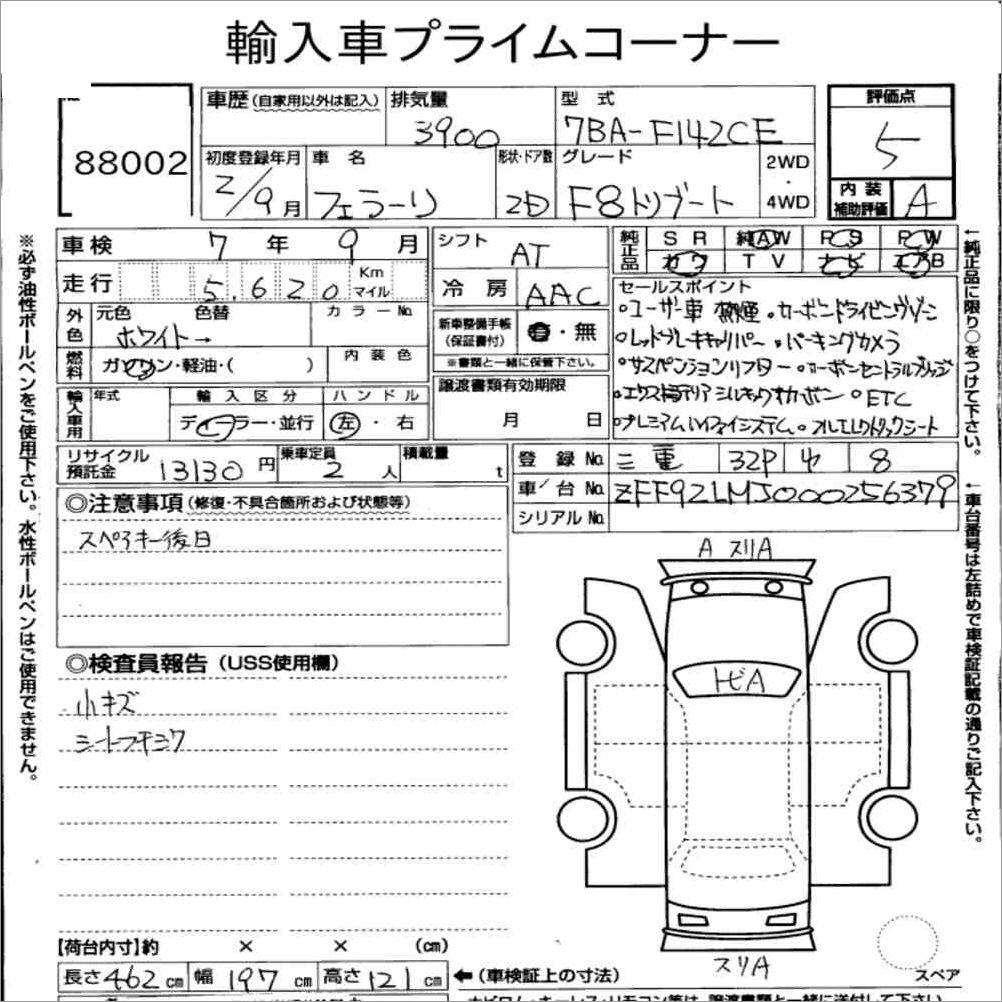 輸入車プライムコーナー
88002
車歴(自家用以外は記入)
排気量
3900
型式
7BA-F142CE
評価点
5
初度登録年月
2/9月
車名
フェラーリ
形状・ドア数
2D
グレード
F8トリブート
2WD
・
4WD
内装
補助評価
A
車検 7年 9月
シフト
AT
純正品
SR 純AW PS PW
カワ TV ナビ エアB
走行 5,620 Km マイル
冷房 AAC
セールスポイント
外色
元色 色替
ホワイト→
カラーNo.
新車整備手帳
(保証書付)
有・無
※書類と一緒に保管下さい。
°ユーザー車 禁煙 °カーボンドライビングゾーン
°レッドブレーキキャリパー °パーキングカメラ
°サスペンションリフター °カーボンセントラルブリッジ
°ETC
°プレミアムハイファイシステム °フルエレクトリックシート
燃料
ガソリン・軽油・( )
内装色
譲渡書類有効期限
月 日
輸入車用
年式
輸入区分
ディーラー・並行
ハンドル
左・右
リサイクル
預託金
13130円
乗車定員
2人
積載量
t
登録No. 三重 32P 8
車/台No. ZFF92LMJ000256379
シリアルNo.
◎注意事項(修復・不具合箇所および状態等)
スペアキー後日
◎検査員報告(USS使用欄)
小キズ
A スリA
トビA
スリA
スペア
【荷台内寸】約 × × (cm)
長さ462cm 幅197cm 高さ121cm
←(車検証上の寸法)
※必ず油性ボールペンをご使用下さい。水性ボールペンはご使用できません。
←純正品に限り○をつけて下さい。
←車台番号は左詰めで車検証記載の通りご記入下さい。